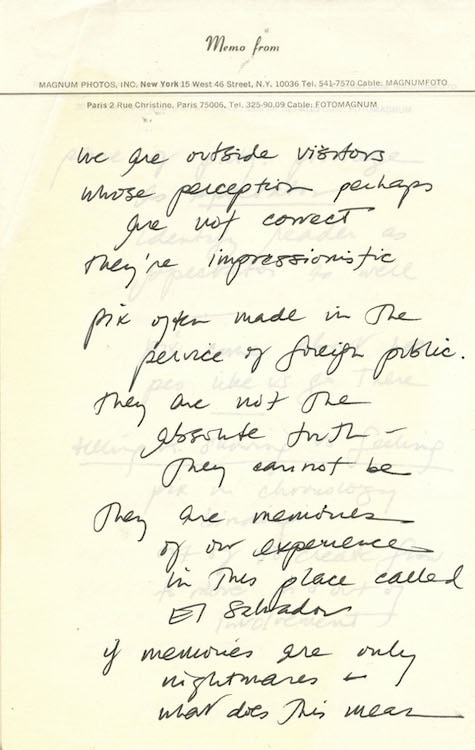 Memo from
MAGNUM PHOTOS, INC. New York 15 West 46 Street, N.Y. 10036 Tel. 541-7570 Cable: MAGNUMFOTO
Paris 2 Rue Christine, Paris 75006, Tel. 325-90.09 Cable: FOTOMAGNUM
we are outside visitors
whose perception perhaps
are not correct
they're impressionistic
pix often made in the
service of foreign public.
they are not the
absolute truth –
they cannot be
they are memories
of our experience
in this place called
El Salvador
if memories are only
nightmares –
what does this mean